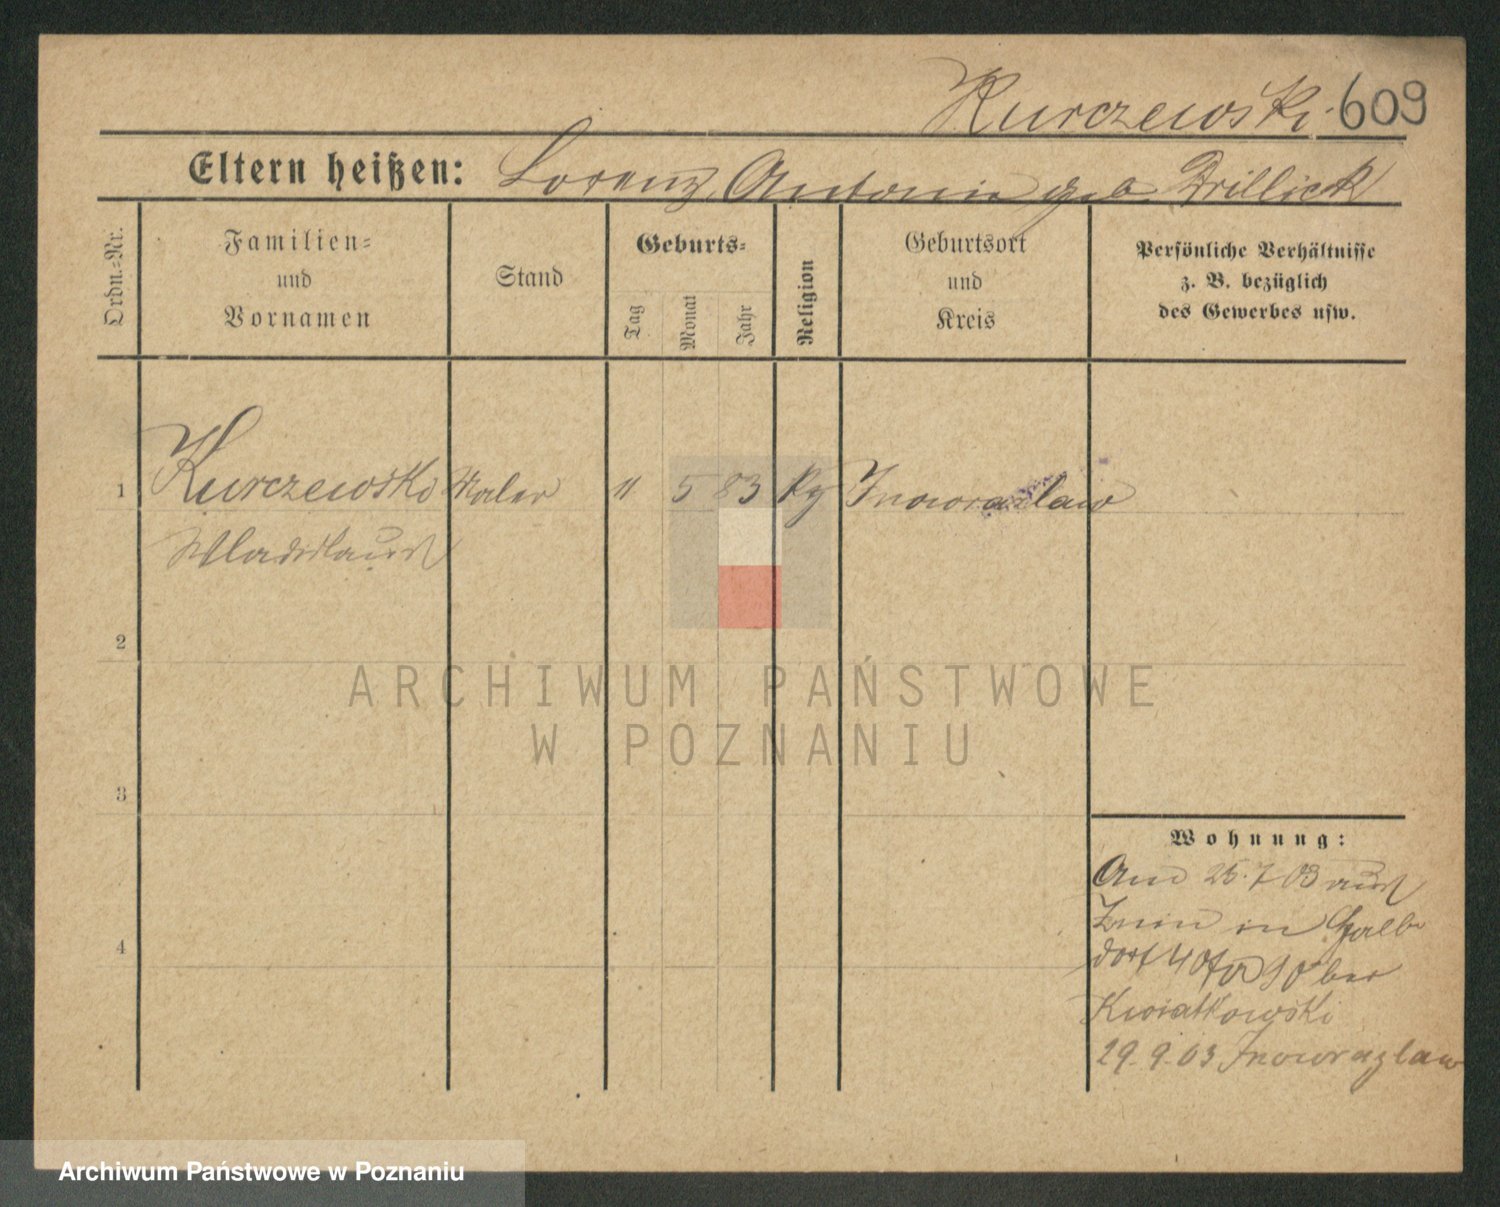 Kurczewski 609
Eltern heißen: Lorenz, Antonie geb. Drillick
Ordn.-Nr.
Familien-
und
Vornamen
Stand
Geburts-
Tag
Monat
Jahr
Religion
Geburtsort
und
Kreis
Persönliche Verhältnisse
z. B. bezüglich
des Gewerbes usw.
1 Kurczewski Maler 11 5 83 kg Inowrazlaw
Wladislaus
2
3
4
Wohnung:
Am 25.7 03 aus
Znin in
dorf 40 bei
Kwiatkowski
29.9.03 Inowrazlaw
ARCHIWUM PAŃSTWOWE
W POZNANIU
Archiwum Państwowe w Poznaniu